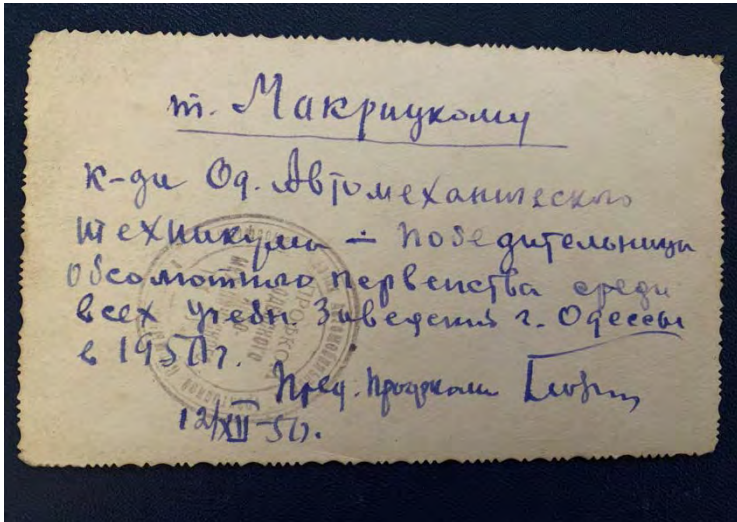 т. Макрицкому
к-ди Од. Автомеханического
техникума – победительницы
обсолютного первенства среди
всех учебн. Заведений г. Одессы
в 1950 г.
Пред. Профкома
12/XII-50.